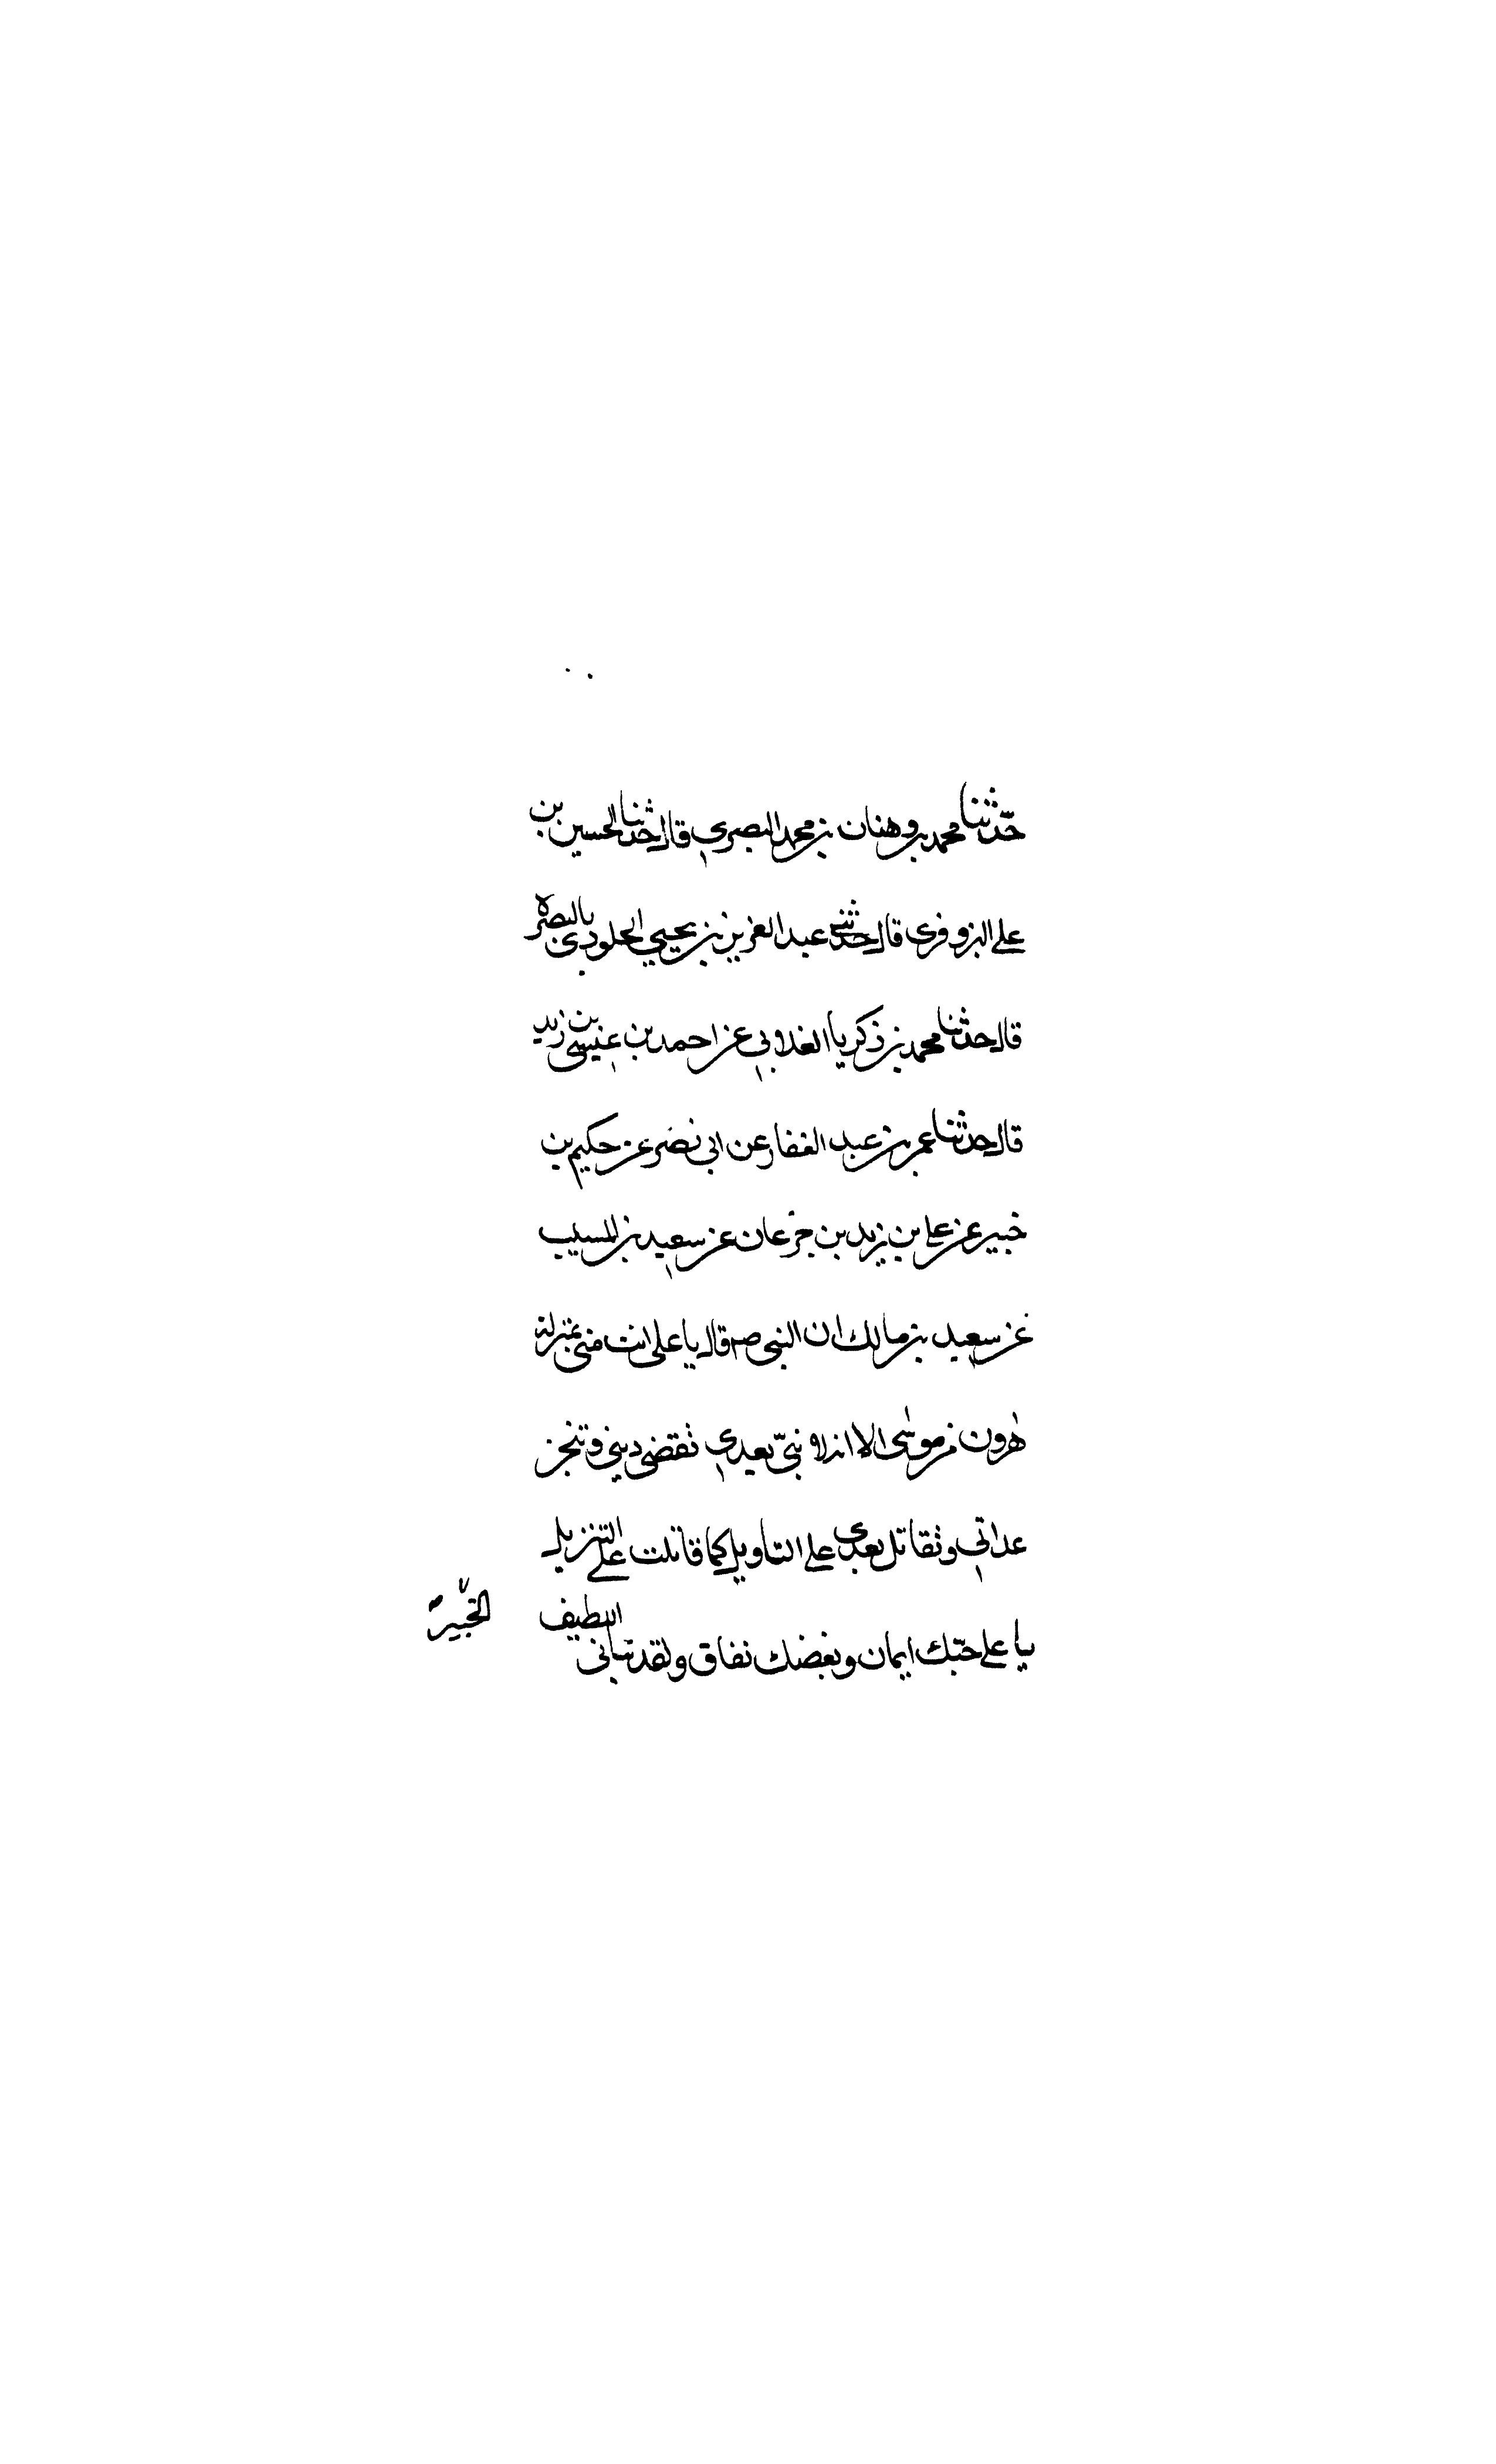 حدّثنا محمد بن وهنان بن محمد البصري قال حدثنا الحسين بن
علي البزوفري قال حدثني عبد العزيز بن يحيي الجلودي بالبصرة
قال حدثنا محمد بن زكريا الغلابي عن احمد بن عيسى بن زيد
قال حدثنا عمر بن عبد الغفار عن ابي نصر عن حكيم بن
خبير عن علي بن زيد بن جزعان عن سعيد بن المسيب
عن سعيد بن مالك ان النبي صم قال يا علي انت مني بمنزلة
هرون من موسى الا انه لا نبيّ بعدي تقضي ديني وتنجز
عداتي وتقاتل بعدي علي التاويل كما قاتلت علي التنزيل
يا علي حبّك ايمان وبغضك نفاق ولقد نبّاني
اللطيف الخبير